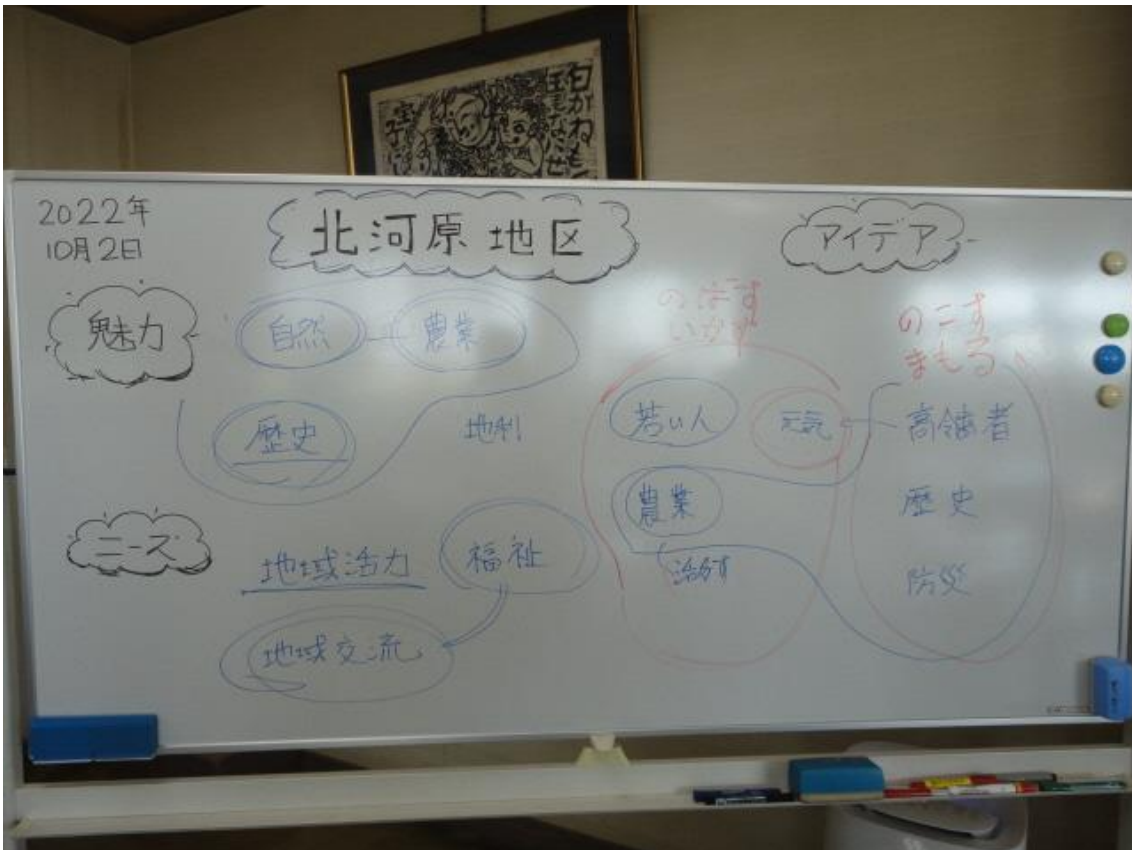 2022年
10月2日
北河原地区
アイデア
魅力
自然
農業
歴史
地利
ニーズ
地域活力
福祉
地域交流
のばす
いかす
若い人
元気
農業
のこす
まもる
高齢者
歴史
防災